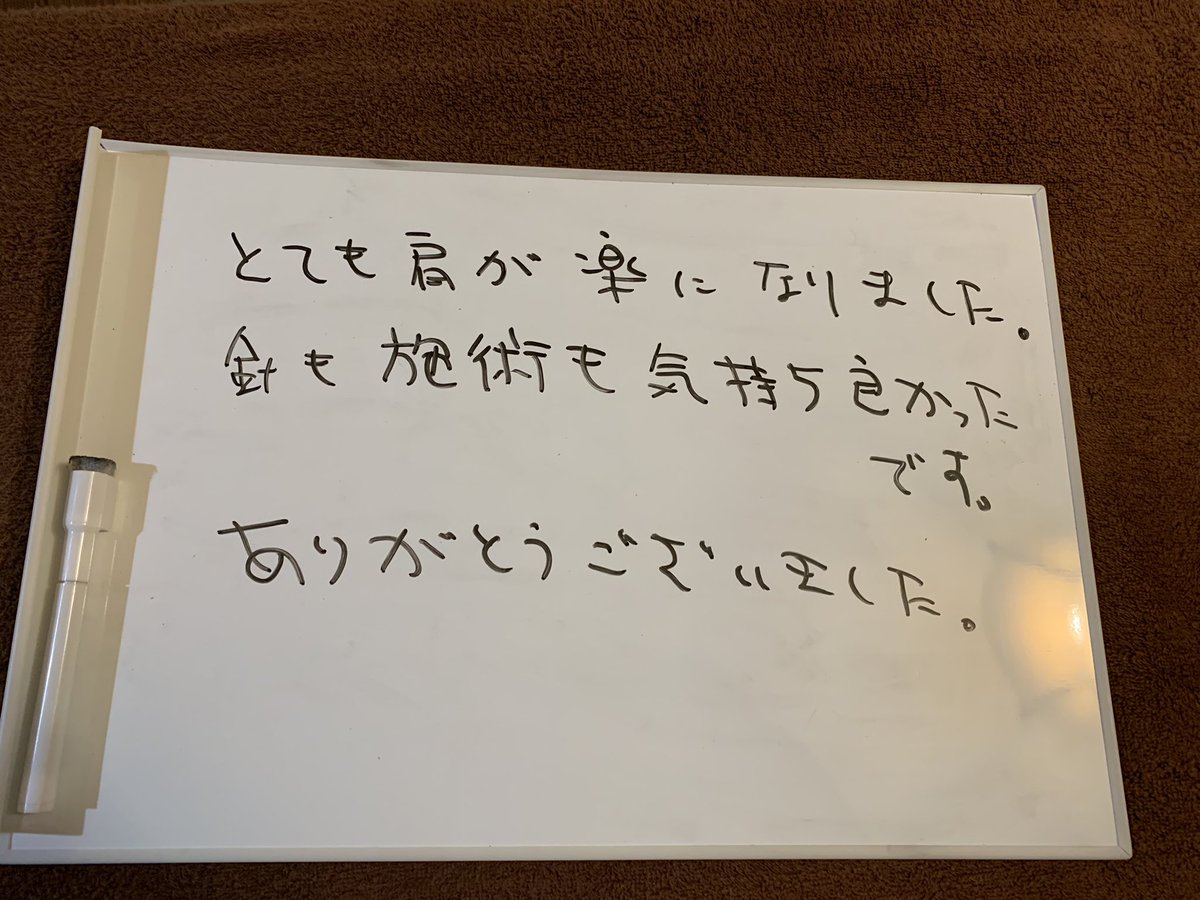 とても肩が楽になりました。
針も施術も気持ち良かった
です。
ありがとうございました。